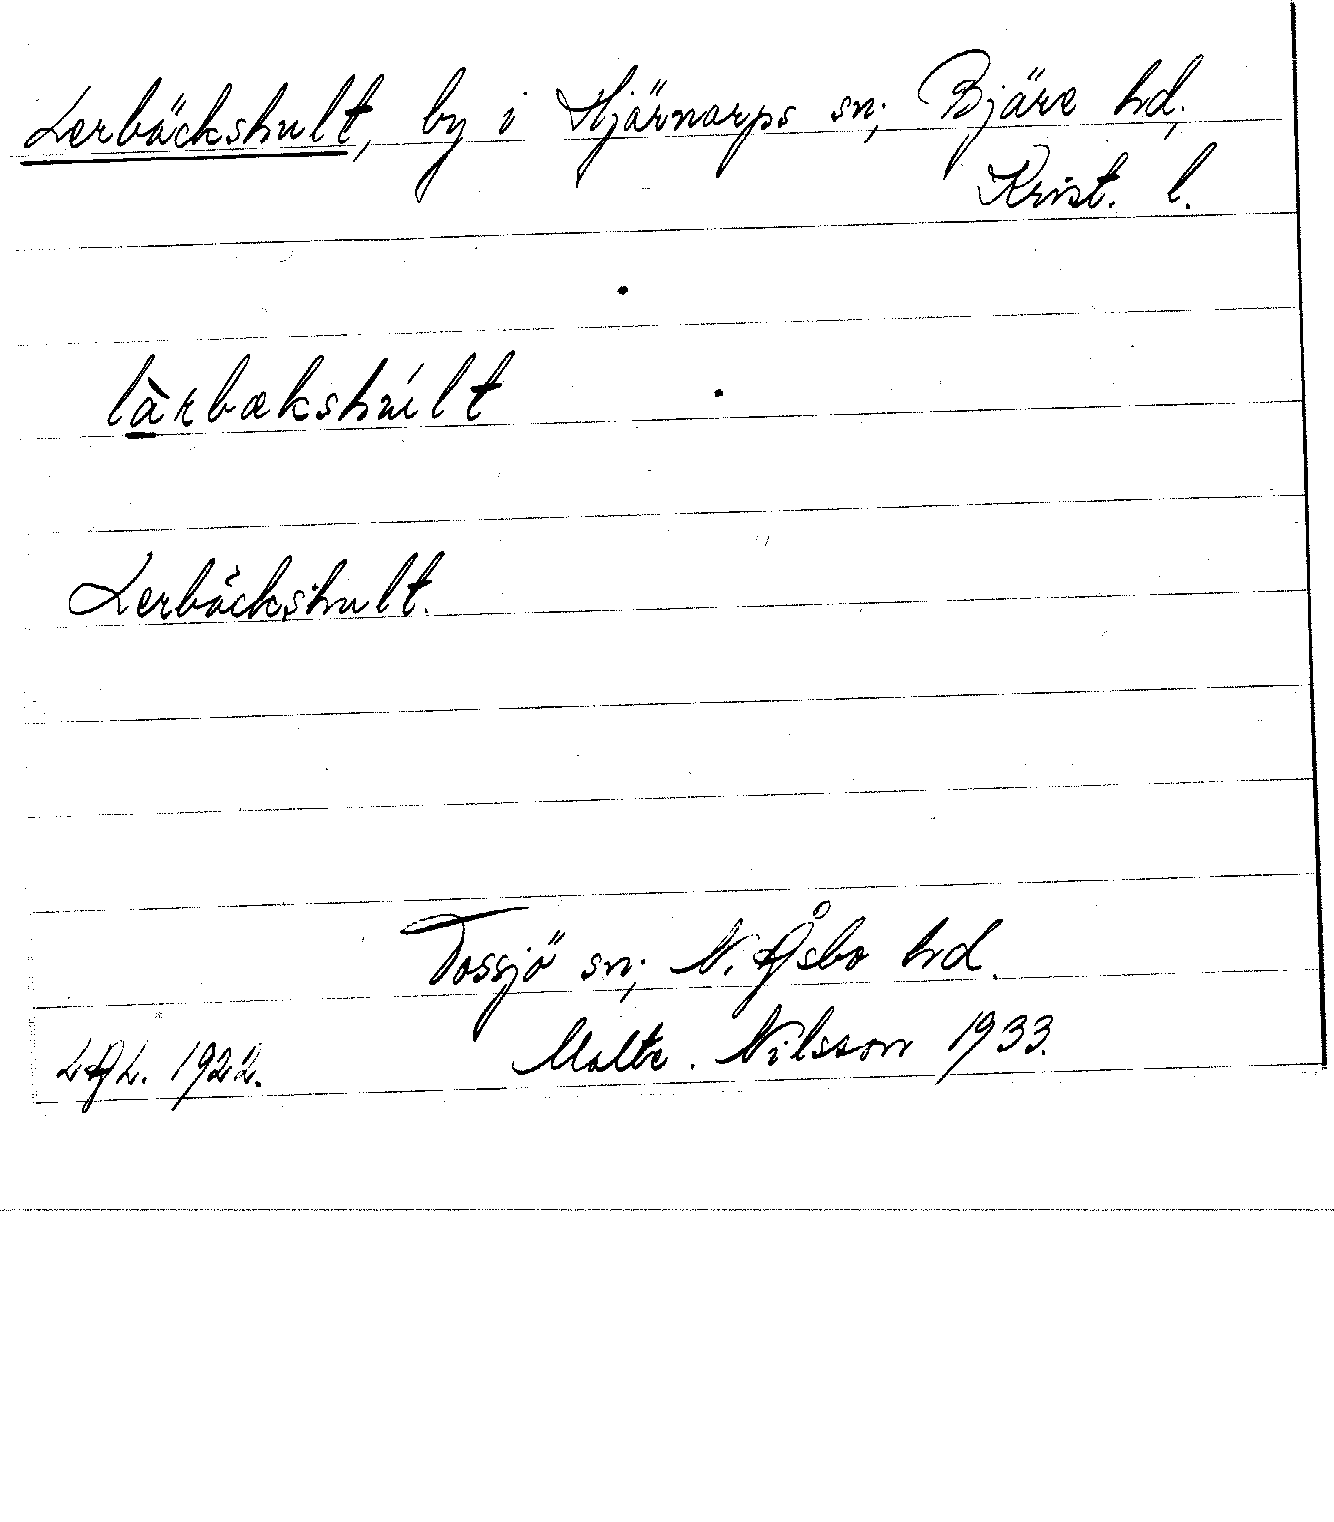 Lerbäckshult, by i Hjärnarps sn; Bjäre hd;
Krist. l.
làrbakshúlt
Lerbäckshult.
Tossjö sn; N. Åsbo hd.
LAL. 1922. Malte. Nilsson 1933.